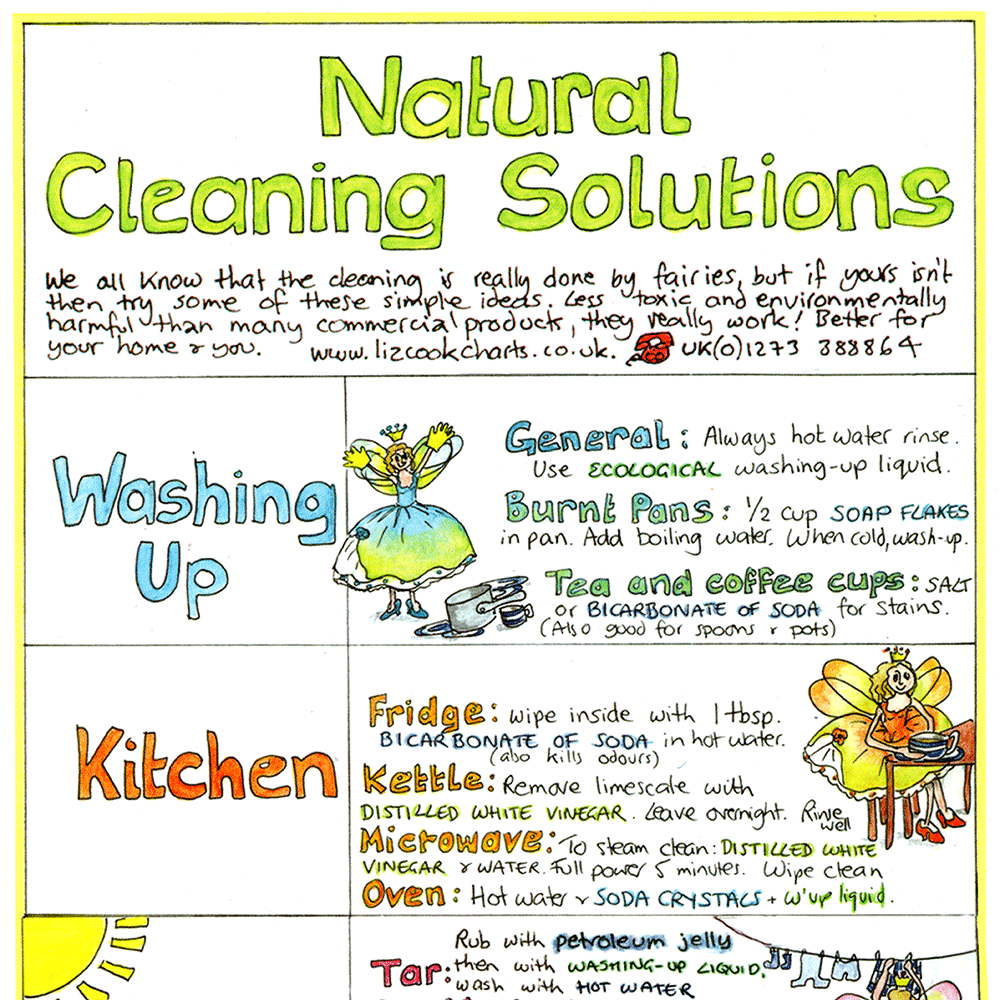 Natural
Cleaning Solutions
We all know that the cleaning is really done by fairies, but if yours isn't
then try some of these simple ideas. Less toxic and environmentally
harmful than many commercial products, they really work! Better for
your home & you. www.lizcookcharts.co.uk. UK(0)1273 388864
Washing
Up
General: Always hot water rinse.
Use ECOLOGICAL washing-up liquid.
Burnt Pans: 1/2 cup SOAP FLAKES
in pan. Add boiling water. When cold, wash-up.
Tea and coffee cups: SALT
or BICARBONATE OF SODA for stains.
(Also good for spoons & pots)
Kitchen
Fridge: wipe inside with 1 tbsp.
BICARBONATE OF SODA in hot water.
(also kills odours)
Kettle: Remove limescale with
DISTILLED WHITE VINEGAR. Leave overnight. Rinse
well
Microwave: To steam clean: DISTILLED WHITE
VINEGAR & WATER. Full power 5 minutes. Wipe clean
Oven: Hot water & SODA CRYSTALS + w'up liquid.
Rub with petroleum jelly
Tar: then with WASHING-UP LIQUID.
wash with HOT WATER